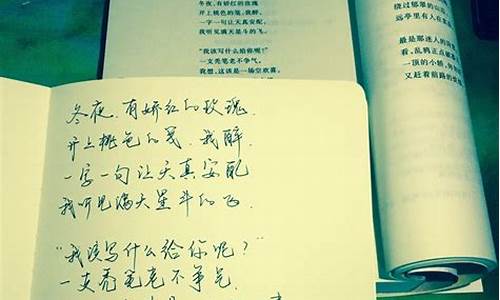 冬夜，有娇红的玫瑰
开上桃色的笺，我醉，
一字一句让天真安配，
我听见满天星斗的飞。
“我该写什么给你呢？”
一支秃笔老不争气。
我想，这该是一场空欢喜。
绕过郁郁的山
远亭里有人在
最是那迷人的
看，乱鸦正点破
一顶的小轿，
又赶着前路的
冬夜，有娇红的玫瑰，
开上桃色的笺，我醉，
一字一句让天真安配
我听见满天星斗的飞，
“我该写什么给你呢？”
一支秃笔老不争气，